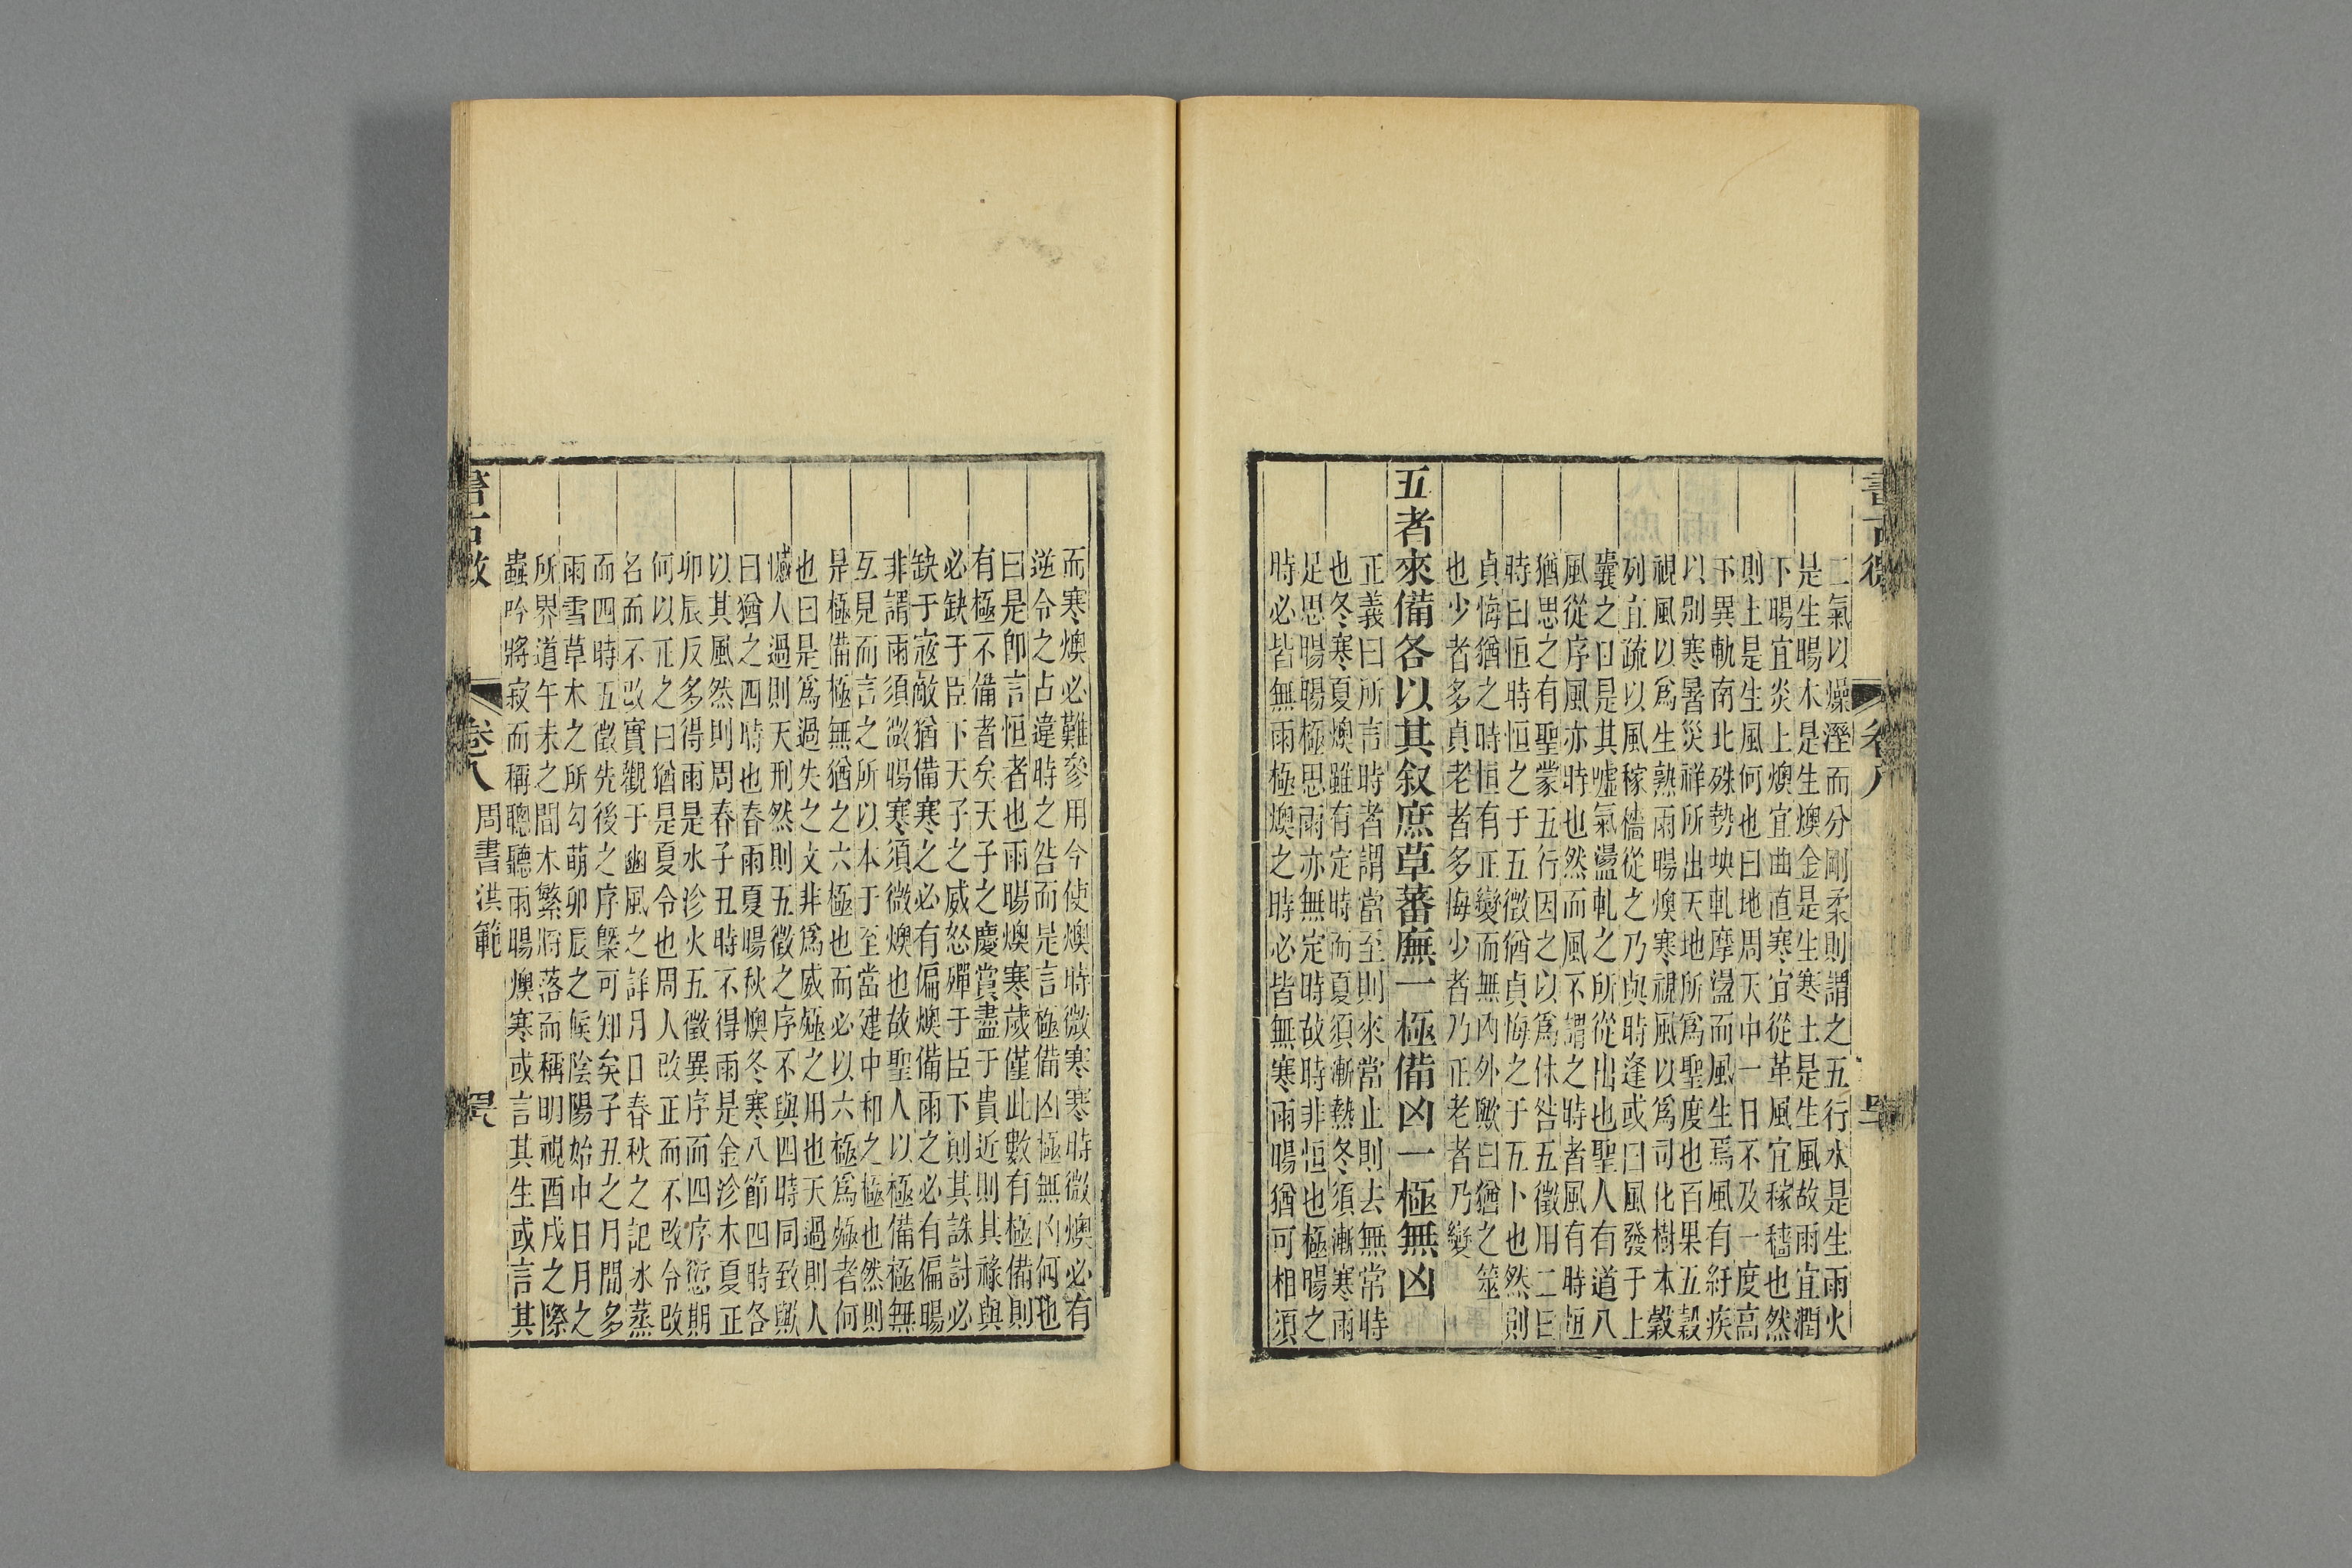 二氣以燥溼而分剛柔則謂之五行水是生雨火
是生暘木是生燠金是生寒土是生風故雨宜潤
下暘宜炎上燠宜曲直寒宜從革風宜稼穡也然
則土是生風何也曰地周天中一日不及一度高
下異軌南北殊勢坱軋摩盪而風生焉風有紓疾
以别寒暑災祥所出天地所爲聖度也百果五穀
視風以爲生熟雨暘燠寒視風以爲司化樹本穀
列宜疏以風稼檣從之乃與時逢或曰風發于上
囊之曰是其噓氣盪軋之所從出也聖人有道八
風從序風亦時也然而風不謂之時者風有時恒
猶思之有聖蒙五行因之以爲休咎五徵用二曰
時曰恒時恒之于五徵猶貞悔之于五卜也然則
貞悔猶之時恒有正變而無内外歟曰猶之筮
也少者多貞老者多悔少者乃正老者乃變
五者來備各以其叙庶草蕃廡一極備凶一極無凶
正義曰所言時者謂當至則來當止則去無常時
也冬寒夏燠雖有定時而夏須漸熱冬須漸寒雨
足思暘暘極思雨亦無定時故時非恒也極暘之
時必皆無雨極燠之時必皆無寒雨暘猶可相須
而寒燠必難參用今使燠時微寒寒時微燠必有
逆令之占違時之咎而是言極備凶極無凶何也
曰是卽言恒者也雨暘燠寒歲僅此數有極備則
有極不備者矣天子之慶賞盡于貴近則其祿與
必缺于臣下天子之威怒殫于臣下則其誅討必
缺于寇敵猶備寒之必有偏燠備雨之必有偏暘
非謂雨須微暘寒須微燠也故聖人以極備極無
互見而言之所以本于至當建中和之極也然則
是極備極無猶之六極也而必以六極爲殛者何
也曰是爲過失之文非爲威殛之用也天過則人
憾人過則天刑然則五徵之序不與四時同致歟
曰猶之四時也春雨夏暘秋燠冬寒八節四時各
以其風然則周春子丑時不得雨是金沴木夏正
卯辰反多得雨是水沴火五徵異序而四序愆期
何以正之曰猶是夏令也周人改正而不改令改
名而不改實觀于豳風之詳月日春秋之記冰蒸
而四時五徵先後之序槩可知矣子丑之月間多
雨雪草木之所勾萌卯辰之候陰陽始中日月之
所界道午未之間木繁將落而稱明視酉戌之際
蟲吟將寂而稱聰聽雨暘燠寒或言其生或言其
卷八
周書洪範